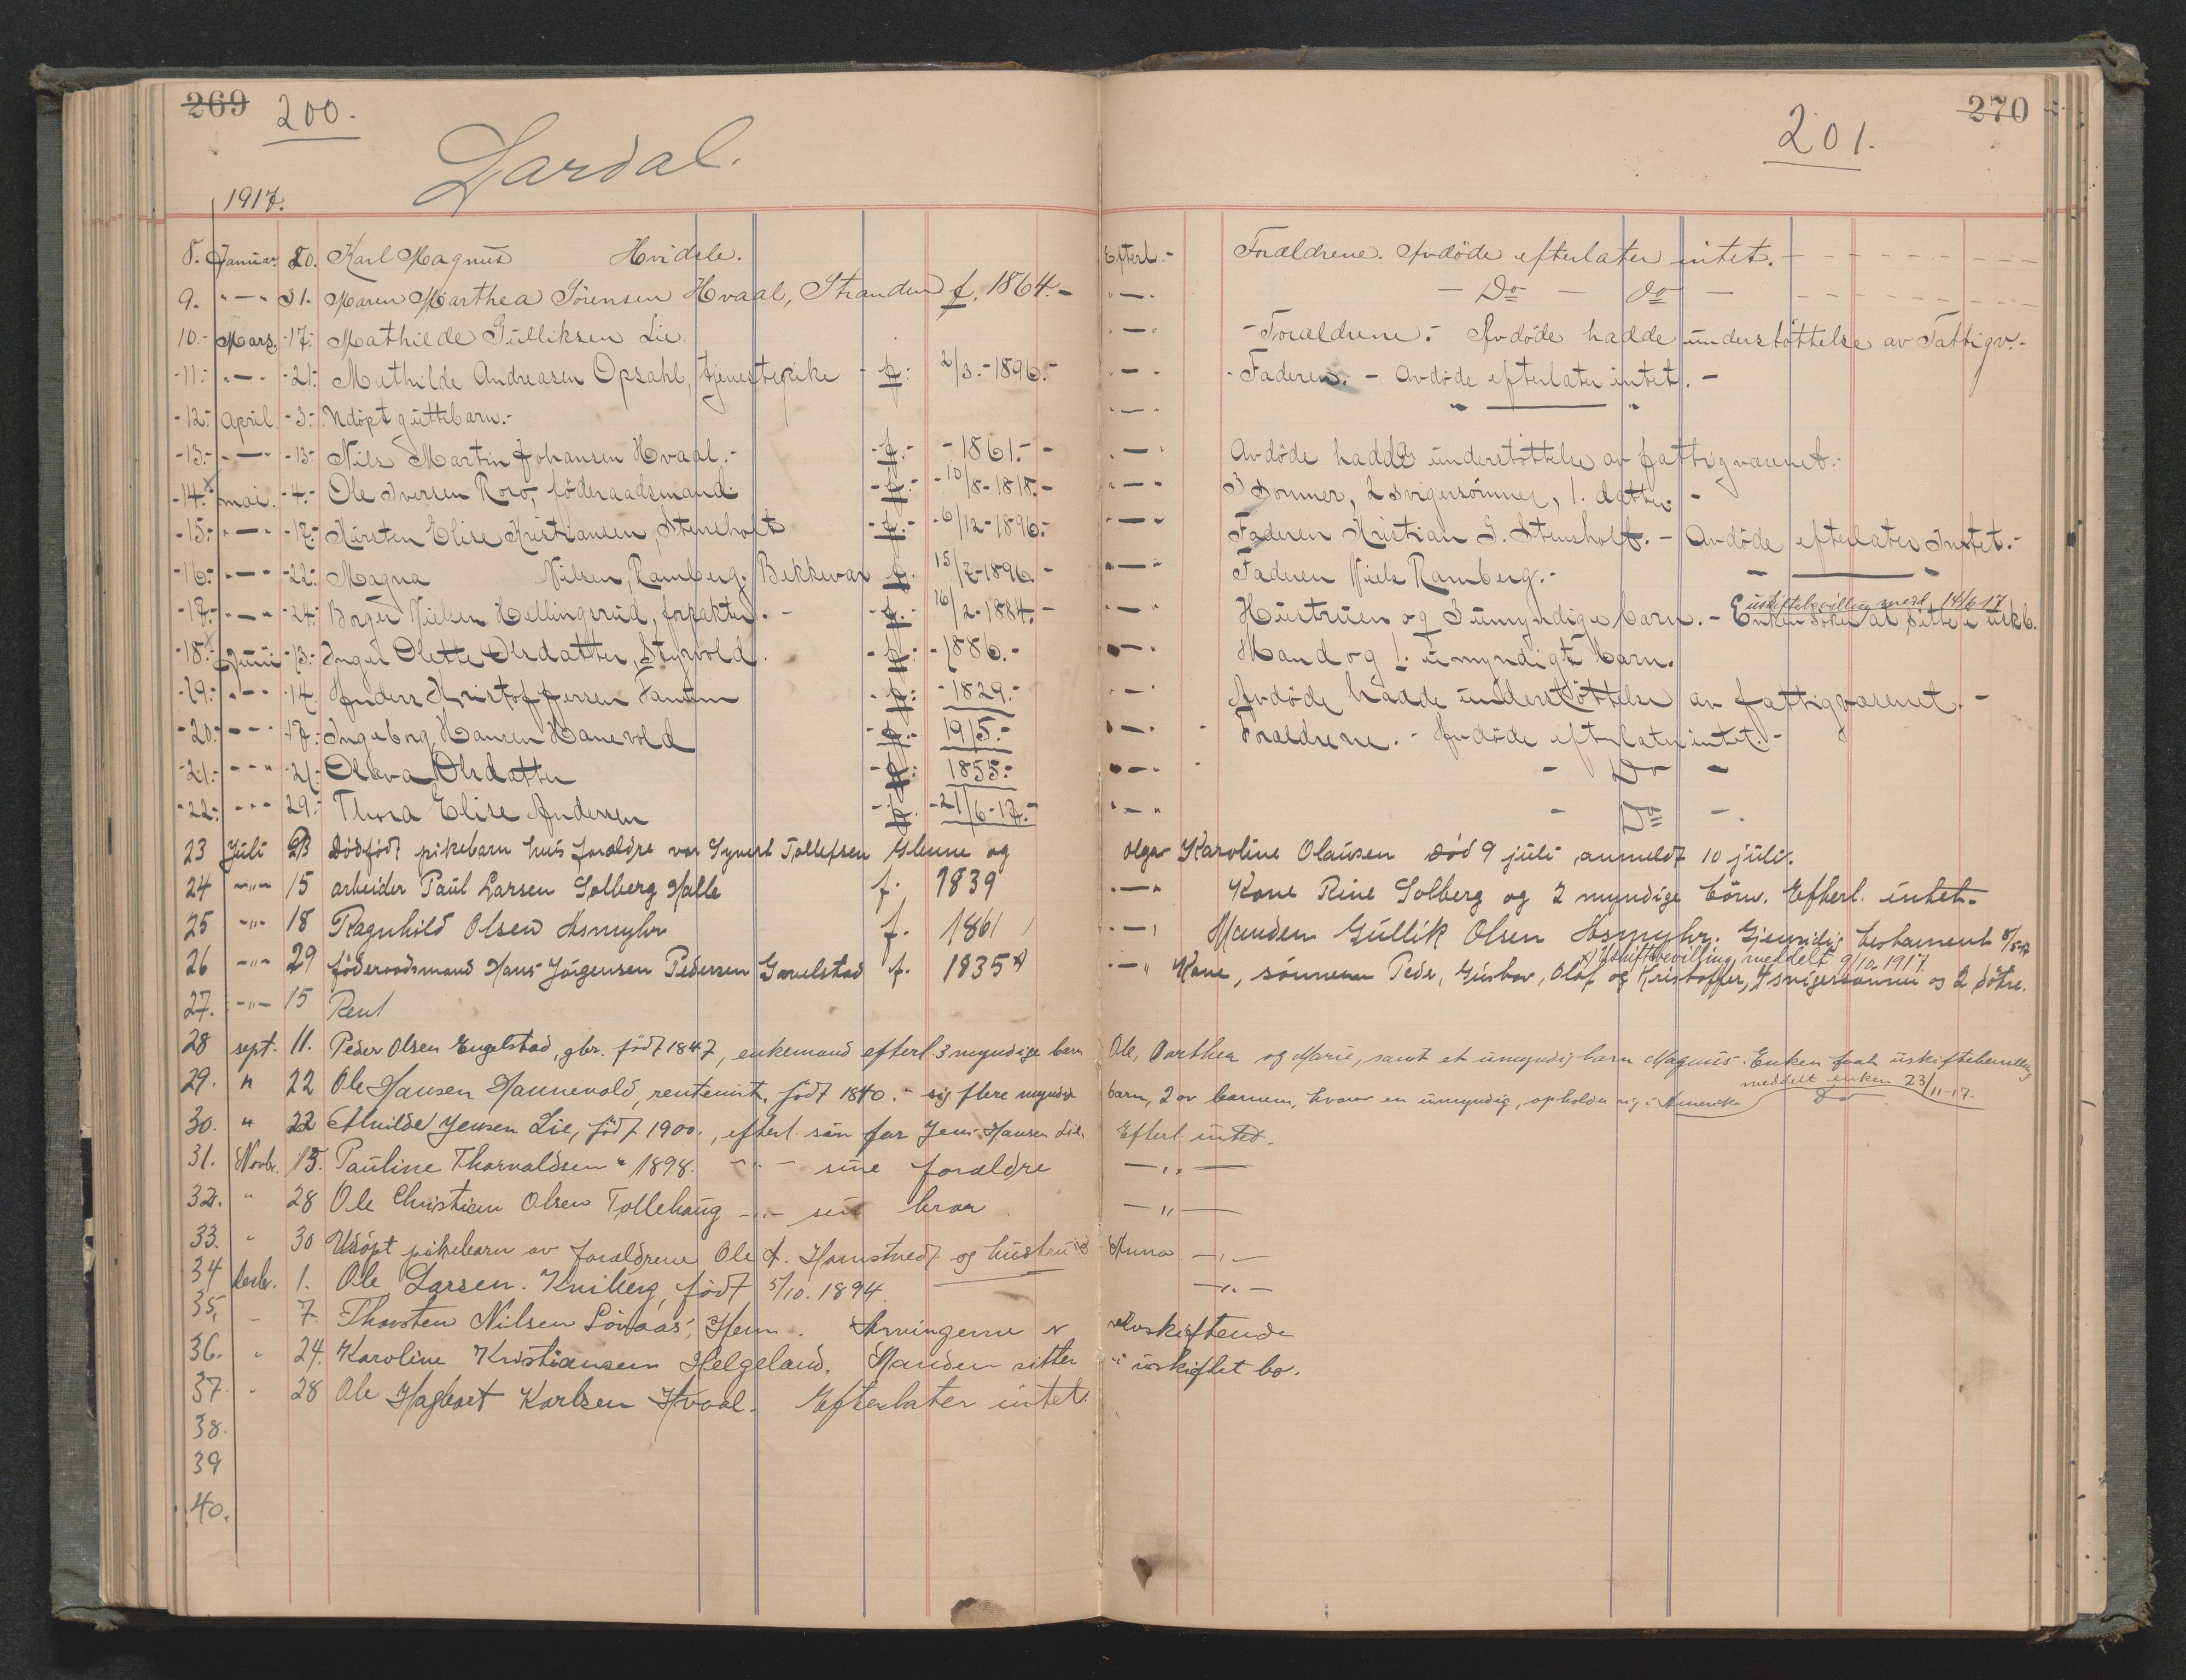 269 200.
201. 270
Lardal.
1917.
8. Januar 20. Karl Magnus Hvidsle. Efterl.- Forældrene. Avdøde efterlater intet.
9. " — " 31. Maren Marthea Sørensen Hvaal, Stranden f. 1864.- " — " — Do — do —
10.- Mars. -17.- Mathilde Gulliksen Lie. " — " - Forældrene.- Avdøde hadde understøttelse av Fattigv.-
-11.- " — " -21.- Mathilde Andreasen Opsahl, tjenestepike - f.- 2/3.-1896.- " — " - Faderen. - Avdøde efterlater intet. -
-12.- April -3.- Udøpt guttebarn.- " — " " — "
-13.- " — " -13- Nils Martin Johansen Hvaal.- - f.- -1861.- " — " Avdøde hadde understøttelse av fattigvæsenet.-
-14.- mai. -4.- Ole Iversen Roro, føderaadsmand. - f.- -10/8-1818.- " — " 3 Sønner, 2 svigersønner, 1. datter. -
-15.- " — " -17.- Kirsten Elise Kristiansen, Stensholt - f.- -6/12-1896.- " — " Faderen Kristian S. Stensholt. - Avdøde efterlater Intet.-
-16.- " — " -22.- Magna Nilsen, Ramberg, Bekkevar f. 15/7-1896.- " — " Faderen Niels Ramberg.- - — -
-17.- " — " -24.- Borger Nielsen Hellingsrud, forpakter. - - f.- 16/2-1884.- " — " Hustruen og 3 umyndige barn. - Enken søker at sitte i uskb.
uskiftebevilling med. 14/6 17
-18.- Juni -13.- Ingel Olette Olsdatter, Styrvold. - f.- -1886.- " — " Mand og 1. umyndigt barn.
-19.- " — " 14. Anders Kristoffersen - f.- -1829.- " — " Avdøde hadde understøttelse av fattigvæsenet. -
-20.- " — " -17.- Ingeborg Hansen Hanevold - f.- 1915.- " — " - Forældrene. - Avdøde efterlater intet. -
-21.- " — " -21.- Olava Olsdatter - f.- 1855.- " — " - - Do -
-22.- " — " 29.- Thora Elise Andersen - f.- -21/6-17.- " — " - Do -
23 Juli 23 Dødfødt pikebarn hvis forældre var Syvert Tollefsen Glenne og Olga Karoline Olausen død 9 juli, anmeldt 10 juli.
24 -"- 15 arbeider Paul Larsen Solberg Halle f. 1839 " — " Kone Rine Solberg og 2 myndige børn. Efterl. intet-
25 -"- 18 Ragnhild Olsen Asmyhr f. 1861 " — " Manden Gullik Olsen Asmyhr. Gjensidig testament
26 -"- 29 føderaadsmand Hans Jørgensen Pedersen Gavelstad f. 1835 x) " — " Kone, sønnene Peder, Gustav, Olaf og Kristoffer, 4 svigersønner og 2 døtre.
x) Uskiftebevilling meddelt 9/10 1917.
27. -"- 15 Rent
28 sept. 11. Peder Olsen Engelstad, gbr. født 1847, enkemand efterl. 3 myndige barn Ole, Marthea og Marie, samt et umyndig barn Magnus. Enken faat uskiftebevilling
meddelt enken 23/11-17.
29. " 22 Ole Hansen Hannevold, rentenist, født 1840. - sig flere myndige barn, 2 av barnene, hvorav en umyndig, opholder sig i Amerika Do
30. " 22 Alvilde Jensen Lie, født 1900., efterl. sin far Jens Hansen Lie. Efterl. intet.
31. Novbr. 13. Pauline Thorvaldsen " 1898. -"- sine forældre — " —
32. " 28 Ole Christian Olsen Tollehaug -"- sin bror — " —
33. " 30 Udøpt pikebarn av forældrene Ole A. Hamstvedt og hustru Anna — " —
34 desbr. 1. Ole Larsen. Kniberg, født 5/10. 1894. — " —
35, - 7 Thorsten Nilsen Lønaas, Hem. Arvingerne er selvskiftende
36. " 24. Karoline Kristiansen Helgeland. Manden sitter i uskiftet bo.
37. " 28 Ole Hagbart Karlsen Hvaal. Efterlater intet.
38.
39
40.